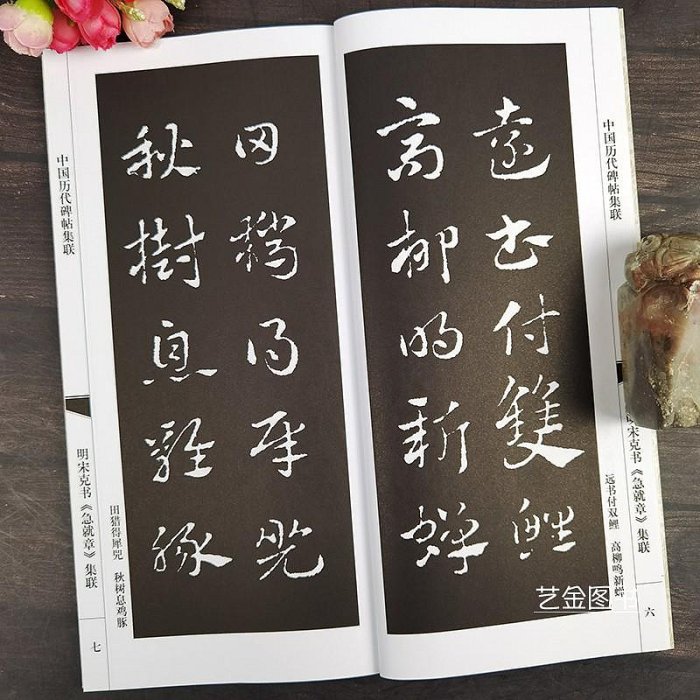 中国历代碑帖集联
宋克书《急就章》集联
六
遠書付雙鯉
高柳鳴新蟬
远书付双鲤 高柳鸣新蝉
田獵得犀兕
秋樹息雞豚
田猎得犀兕 秋树息鸡豚
中国历代碑帖集联
明宋克书《急就章》集联
七
艺金图书